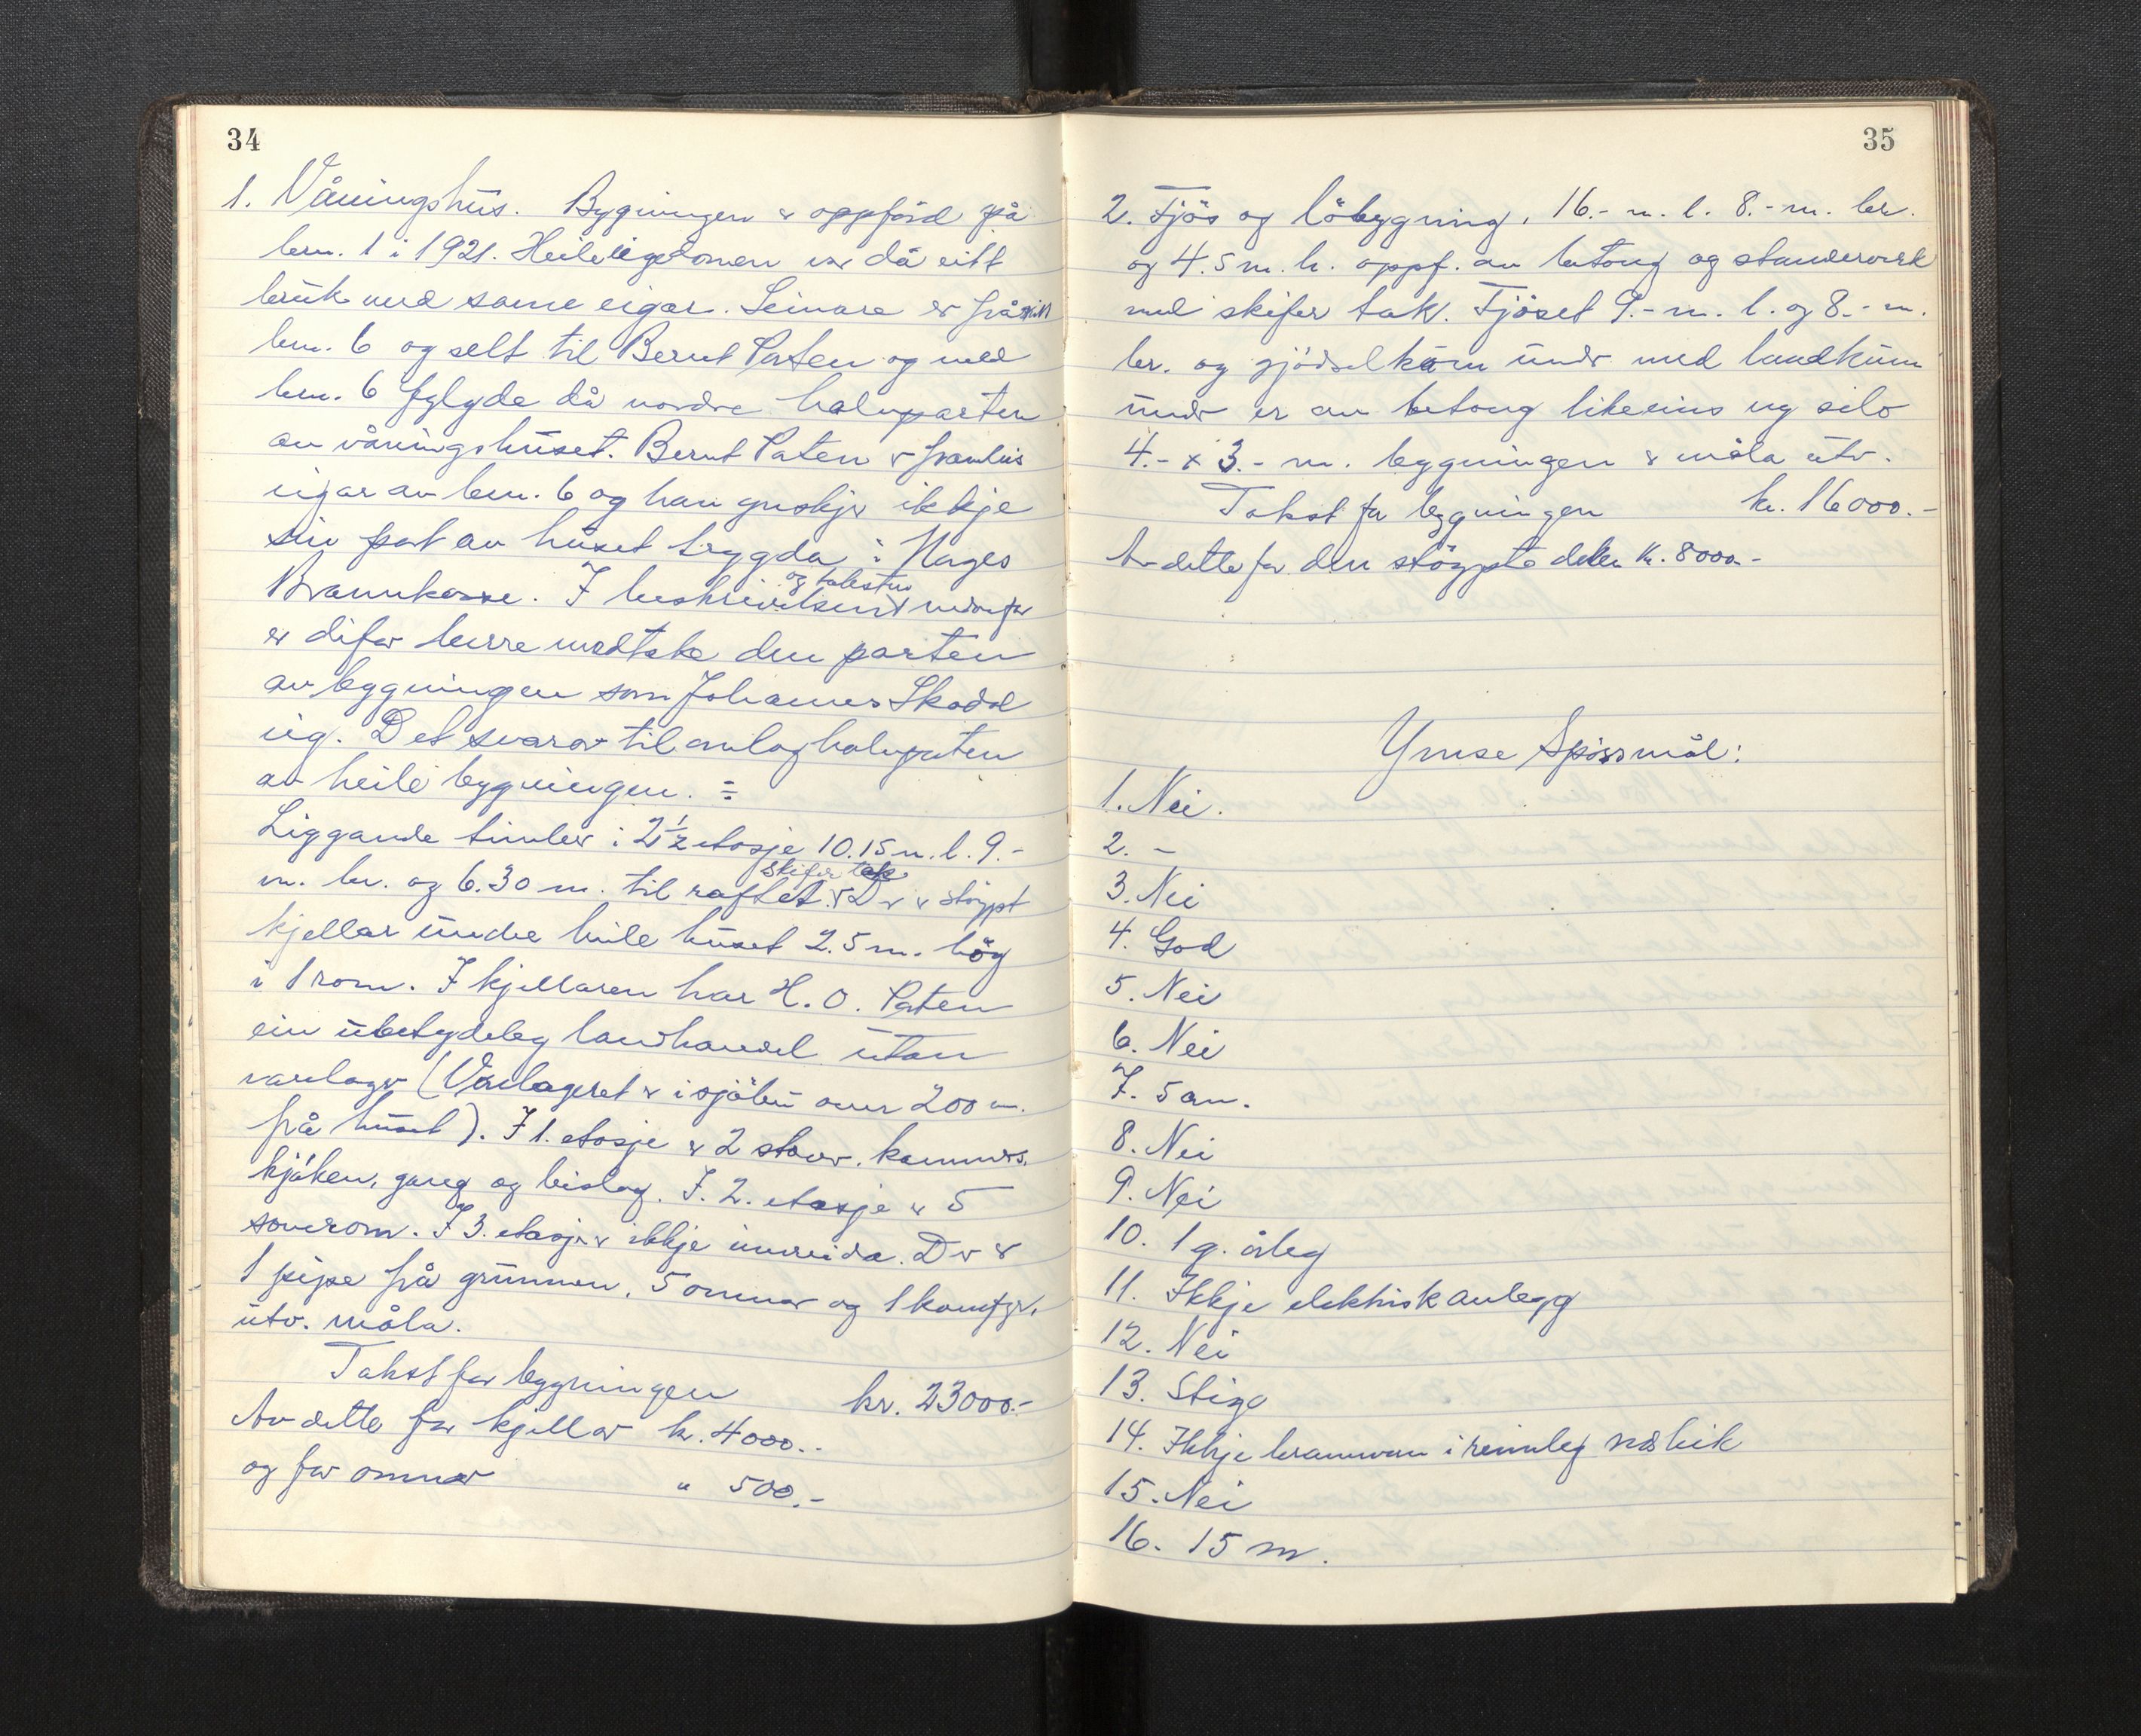 34
1. Våningshus. Bygningen er oppførd på
brn. 1 i 1921. Heile eigedomen var då eitt
bruk med same eigar. Seinare er fråskilt
brn. 6 og selt til Bernt Paten og med
brn. 6 fylgde då nordre halvparten
av våningshuset. Bernt Paten er framleis
eigar av brn. 6 og han ynskjer ikkje
sin part av huset trygda i Norges
Brannkasse. I beskrivelsen og taksten nedanfor
er difor berre medteke den parten
av bygningen som Johannes Skodd
eig. Det svarar til omlag halvparten
av heile bygningen. ÷
Liggande timber i 2 1/2 etasje 10.15 m. l. 9.-
m. br. og 6.30 m. til raftet. Skifer tak. Der er støypt
kjellar under heile huset 2.5 m. høg
i 1 rom. I kjellaren har H. O. Paten
ein ubetydeleg landhandel utan
varelager (Varelageret er i sjøbu over 200 m.
frå huset). I 1. etasje er 2 stover, kammers,
kjøken, gang og bislag. I. 2. etasje er 5
soverom. I 3. etasje er ikkje innreida. Der er
1 pipe frå grunnen, 5 omner og 1 komfyr,
utv. måla.
Takst for bygningen kr. 23000.-
Av dette for kjellar kr. 4000.-
og for omner " 500.-
35
2. Fjøs og løbygning, 16.- m. l. 8.- m. br.
og 4.5 m. h. oppf. av betong og standerverk
med skifer tak. Fjøset 9.- m. l. og 8.- m.
br. og gjødselkum under med landkum
under er av betong likeeins og silo
4.- x 3.- m. bygningen er måla utv.
Takst for bygningen kr. 16000.-
Av dette for den støypte delen kr. 8000.-
Ymse Spørsmål:
1. Nei.
2. -
3. Nei
4. God
5. Nei
6. Nei
7. 5 om.
8. Nei
9. Nei
10. 1 g. årleg
11. Ikkje elektrisk anlegg
12. Nei
13. Stige
14. Ikkje brannvern i rimeleg nærleik
15. Nei
16. 15 m.